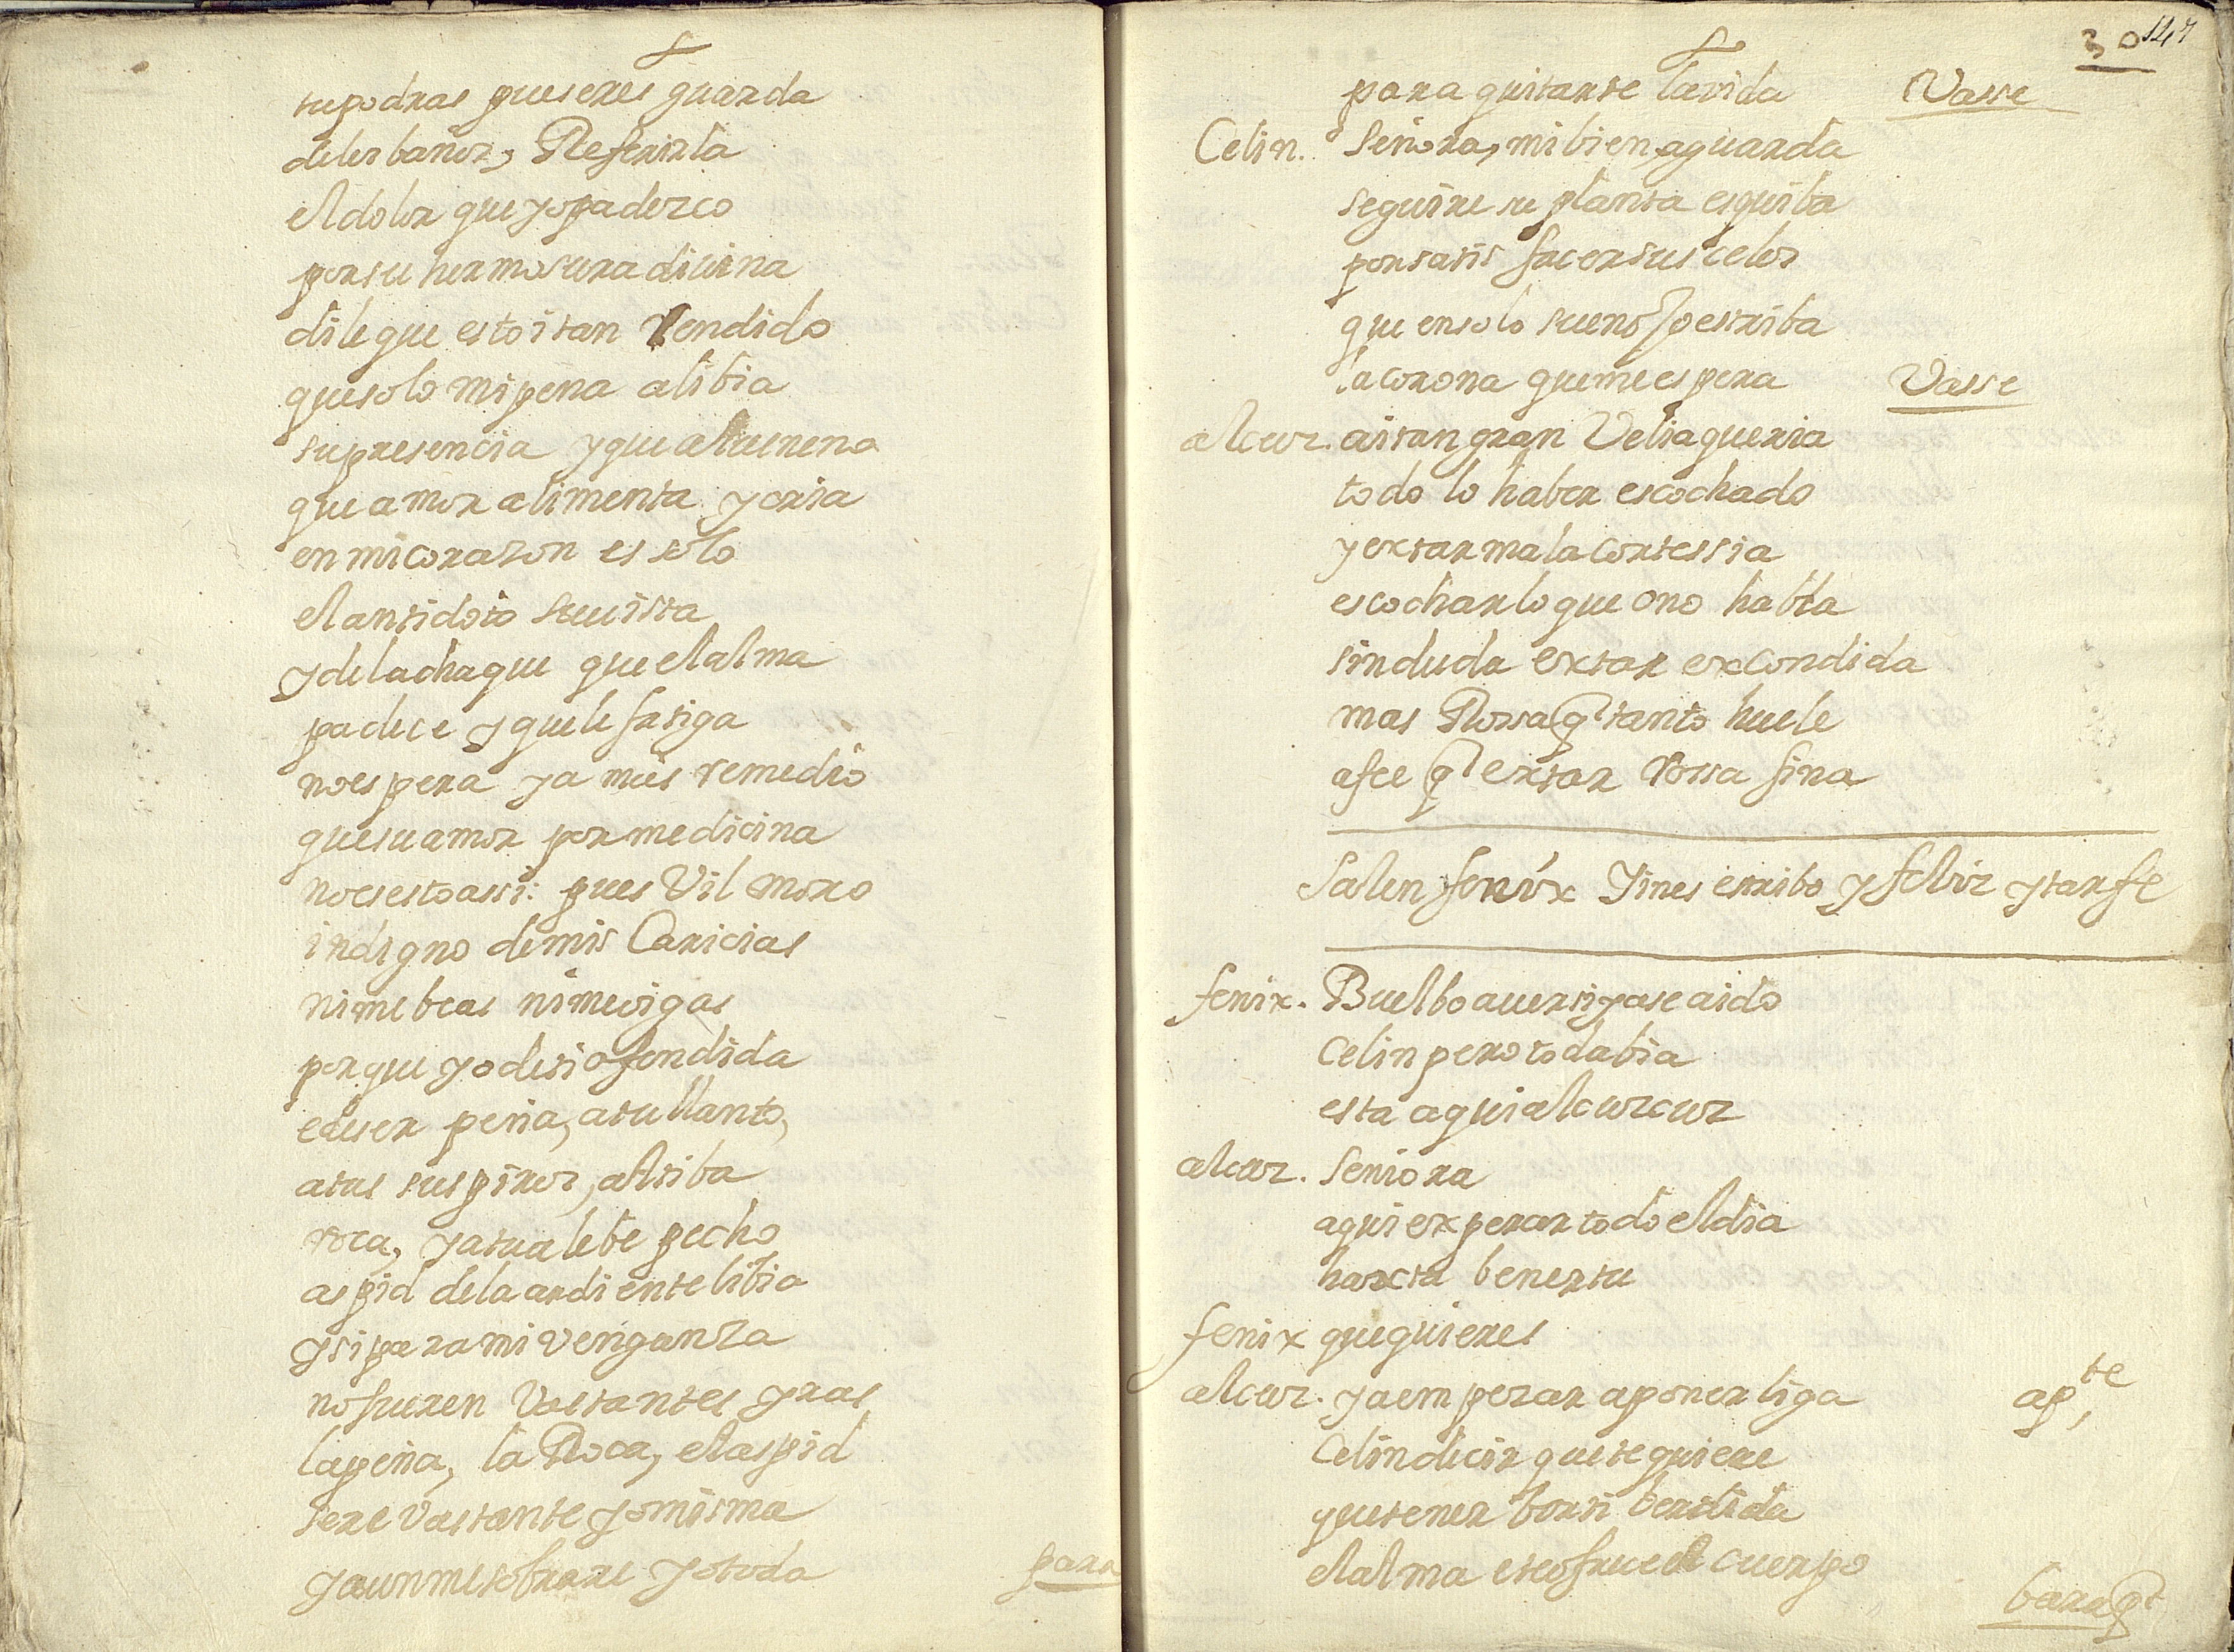 tu podras pues eres guarda
delos baños, Referirla
el dolor que yo padezco
por su hermosura diuina
dile que estoi tan rendido
que solo mi pena alibia
su presencia y que al ueneno
que amor alimenta y cria
en mi corazon es solo
el antidoto su uista
y del achaque que el alma
padece y que le fatiga
no espera ya mas remedio
que su amor por medicina
no es esto assi: pues Vil moro
indigno de mis Caricias
ni me beas ni me oigas
por que yo de ti ofendida
e de ser peña, a tu llanto,
a tus suspiros, altiba
roca, y a tu alebe pecho
aspid de la ardiente libia
y si para mi venganza
no fueren Vastantes yras
la peña, la Roca, el aspid
sere Vastante yo misma
y aun me sobrare yo toda
para
30 147
para quitarte la vida Vasse
Celin. Señora, mi bien, aguarda
seguire su planta esquiba
por satisfacer sus celos
que en solo sueño estriba
la corona que me espera Vasse
alcuz. ai tan gran Veliaqueria
todo lo haber escochado
y extar mala Cortessia
escochar lo que ono habla
sin duda extar excondida
mas Rossa q tanto huele
a fee q extar rossa fina
Salen fenix Jines estribo y feliz y tarfe
fenix. Buelbo a uer si ya se a ido
Celin pero todabia
esta aqui alcuzcuz
alcuz. Seniora
aqui experar todo el dia
haxta benextu
fenix que quieres
alcuz. ya empezar a poner liga apte,
Celin decir que te quiere
que tener borti berdida
el alma e sco fuel cuerpo
para q